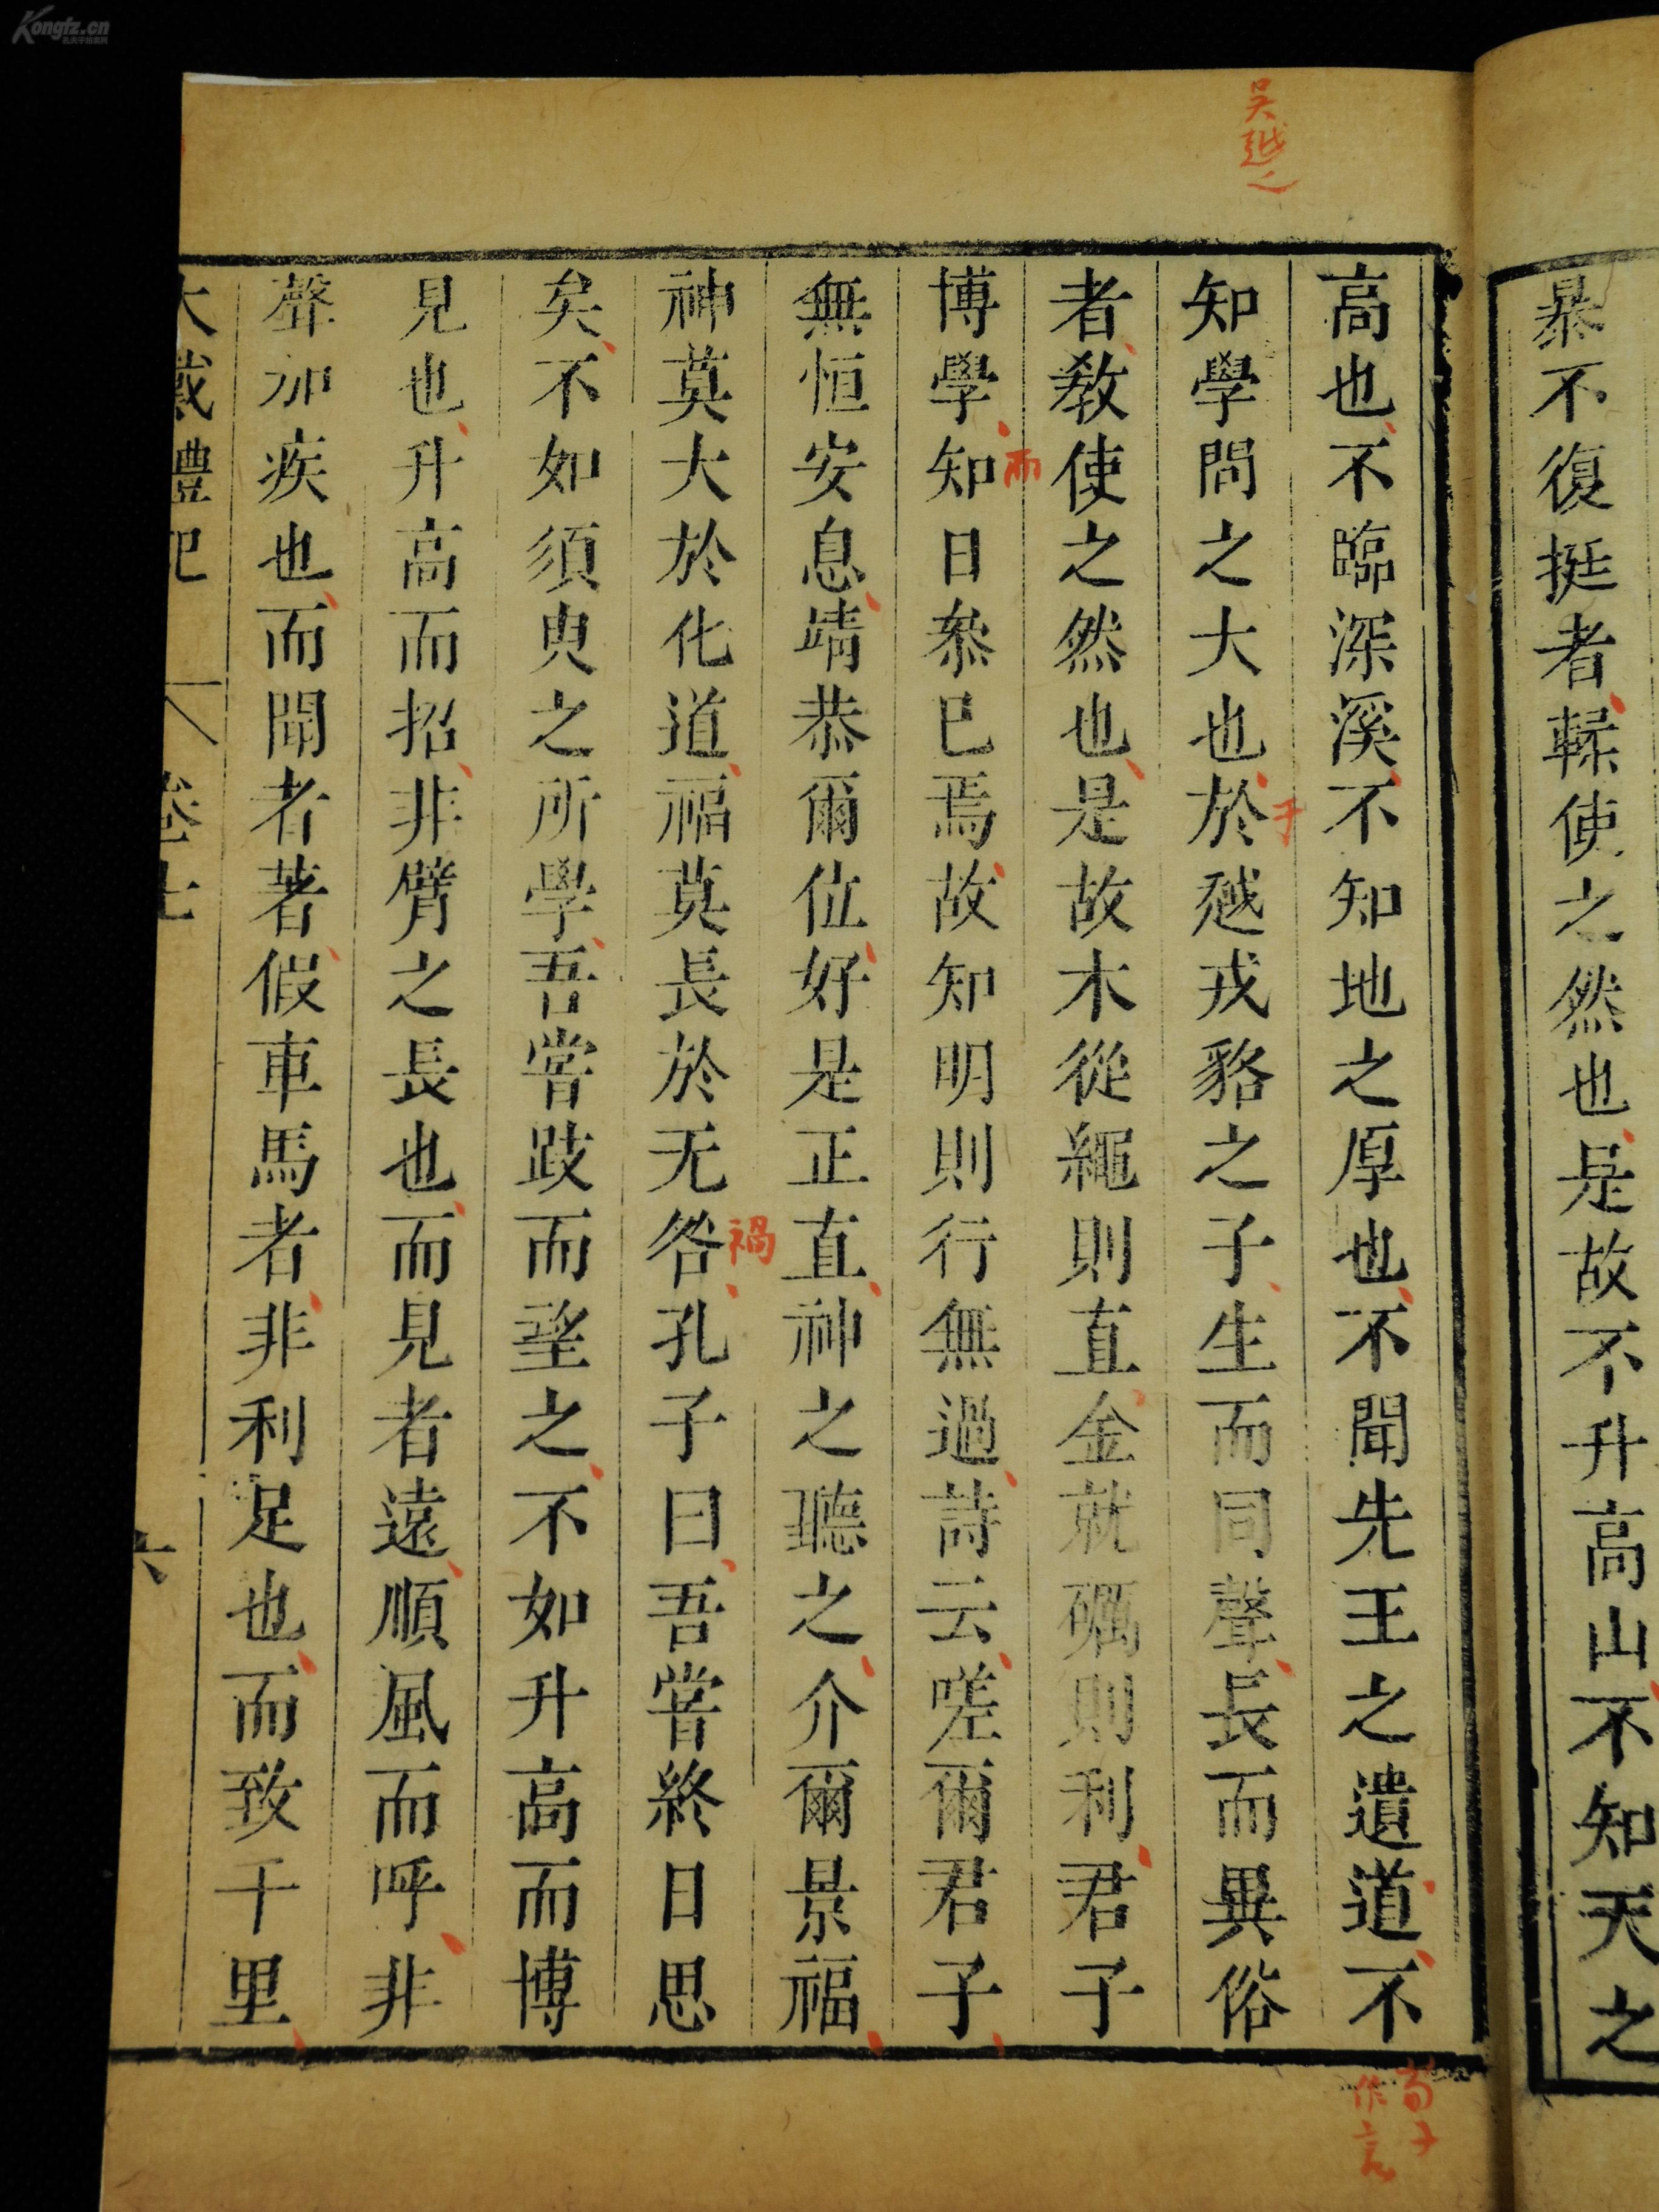 暴不復挺者輮使之然也是故不升高山不知天之
高也不臨深溪不知地之厚也不聞先王之遺道不
知學問之大也於越戎貉之子生而同聲長而異俗
者教使之然也是故木從繩則直金就礪則利君子
博學知日叅巳焉故知明則行無過詩云嗟爾君子
無恒安息靖恭爾位好是正直神之聽之介爾景福
神莫大於化道福莫長於无咎孔子曰吾嘗終日思
矣不如須臾之所學吾嘗跂而望之不如升高而博
見也升高而招非臂之長也而見者遠順風而呼非
聲加疾也而聞者著假車馬者非利足也而致千里
大戴禮記 卷七 六
吳越
于
而
禍
荀子
作言
Kongfz.cn